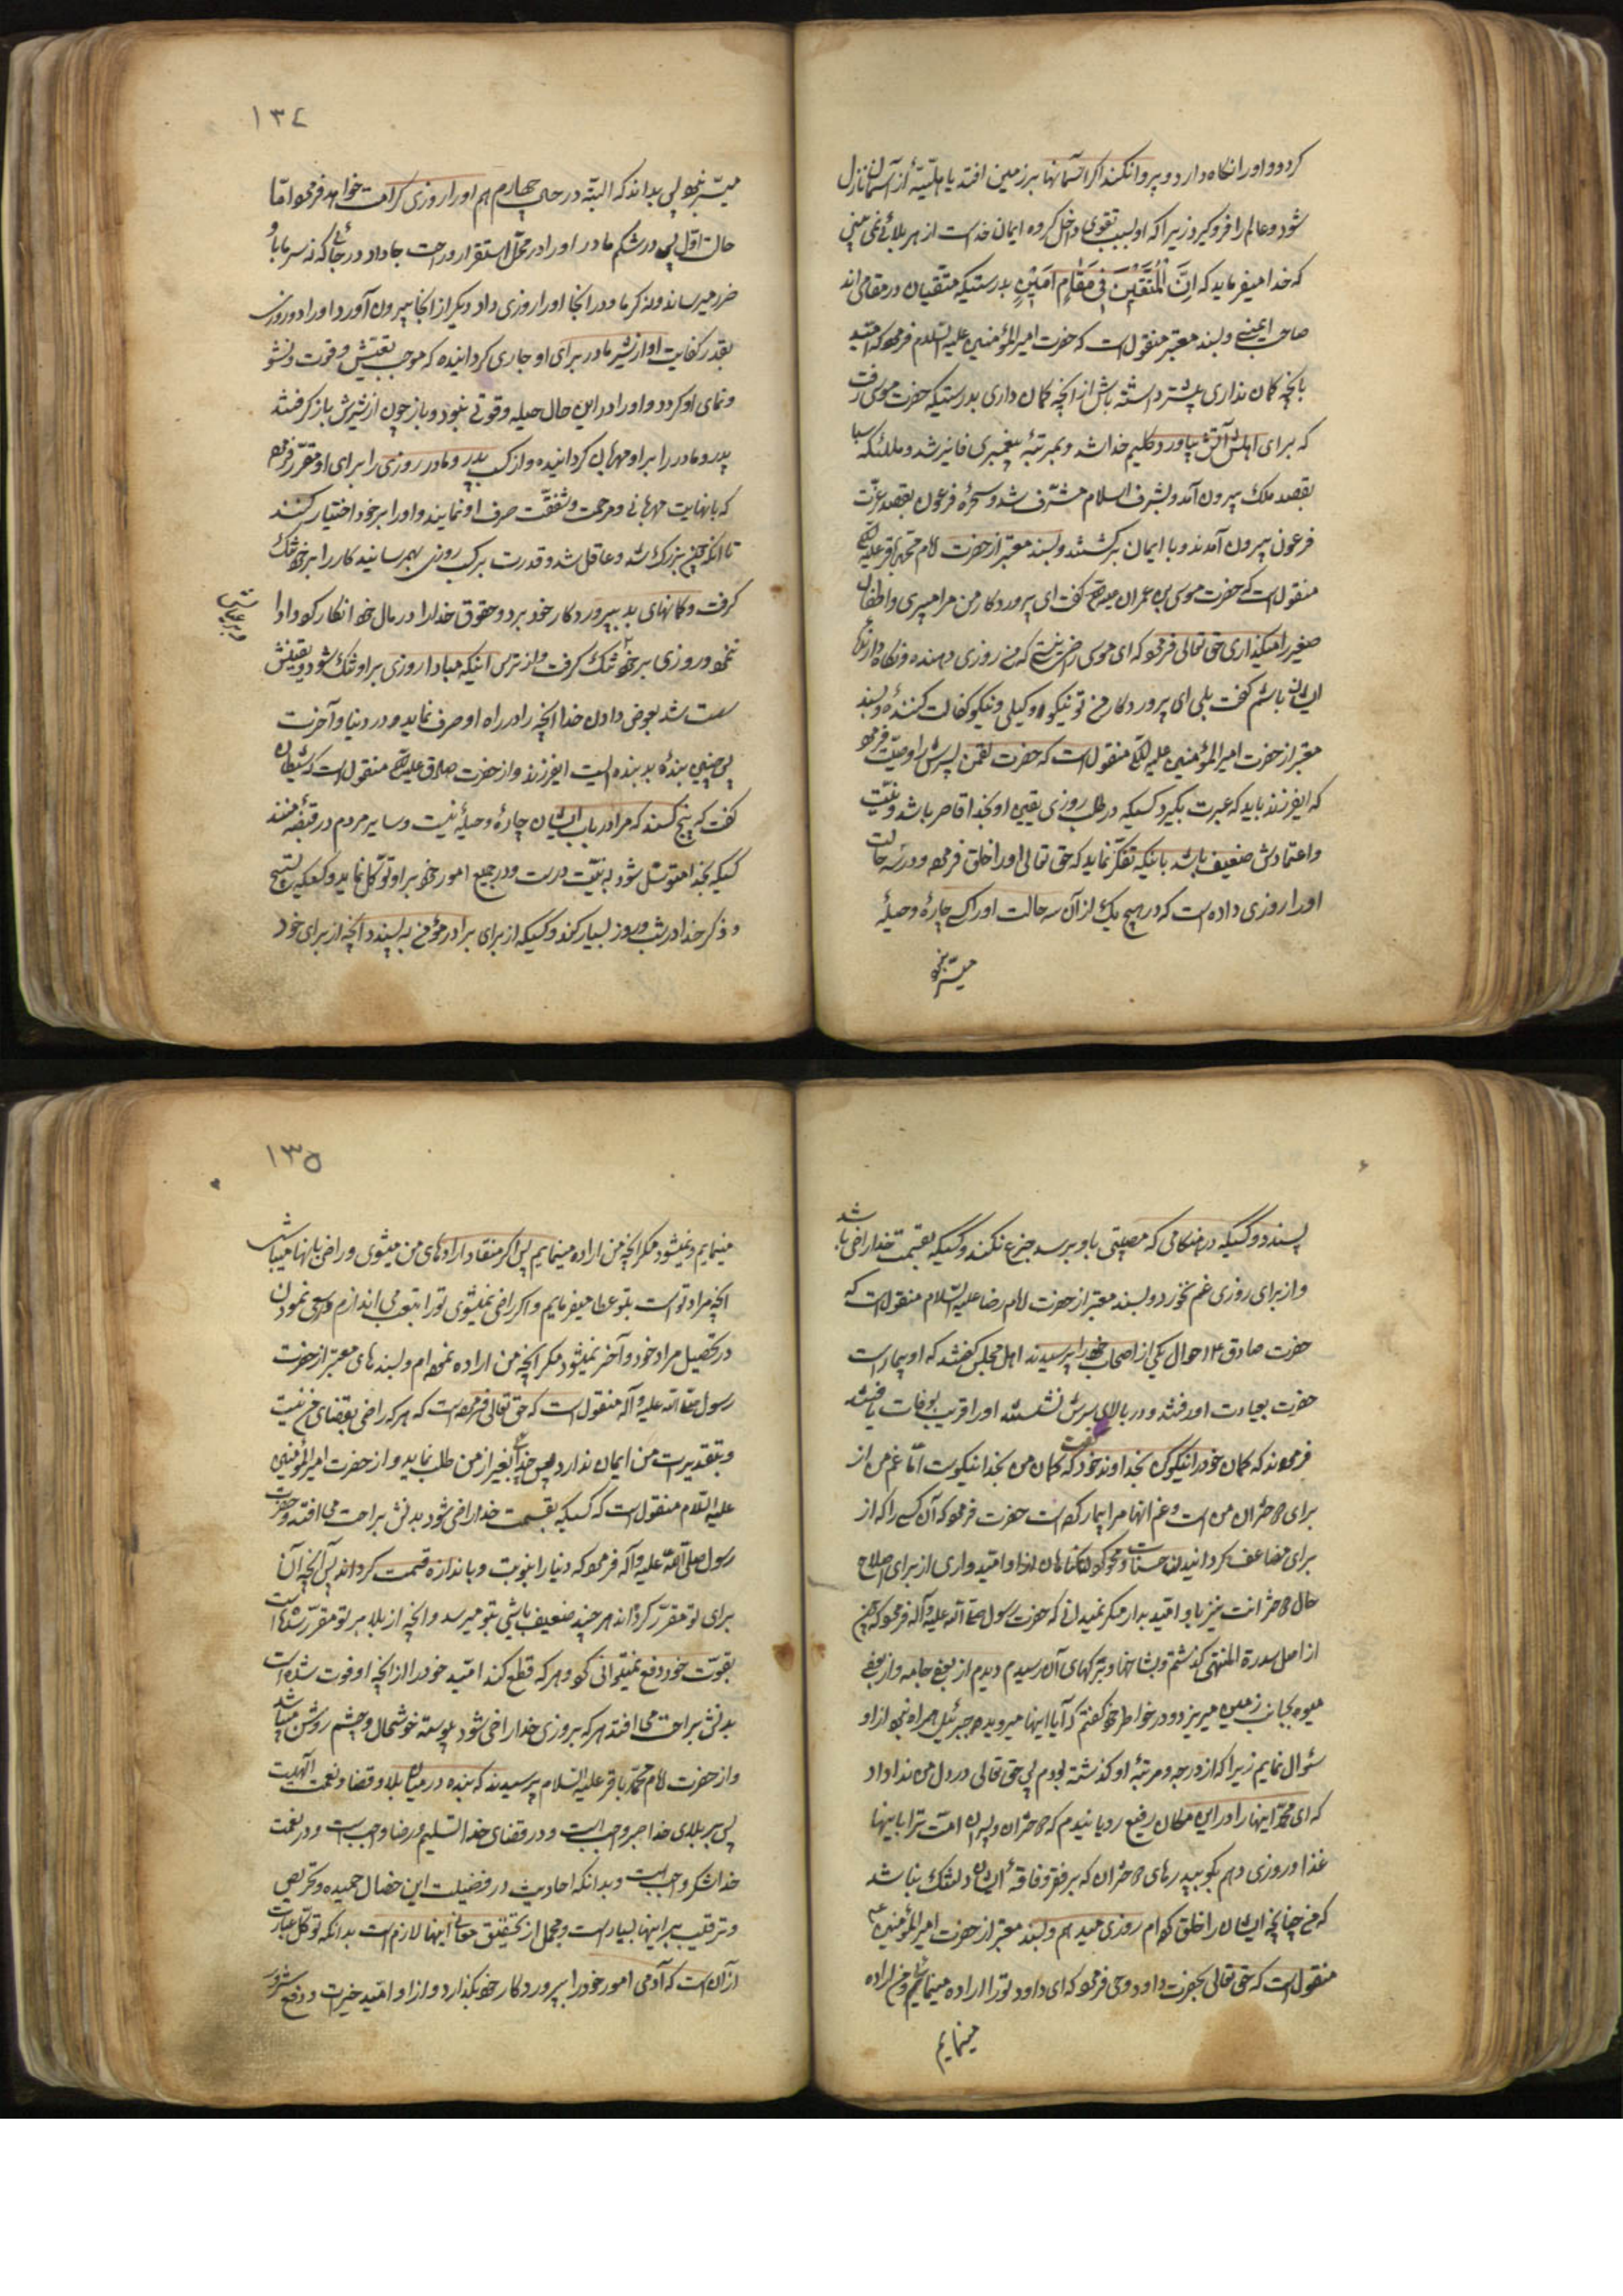 گردد و او را نگاه دارد و پروا نکند اگر آسمانها بر زمین افتد یا بلیّهٔ از آسمان نازل
شود و عالم را فرو گیرد زیرا که او بسبب تقوی داخل گروه ایمان خداست از هر بلائی نمی بینی
که خدا میفرماید که اِنَّ الْمُتَّقینَ فی مَقامٍ اَمینٍ بدرستیکه متّقیان در مقامی اند
صاحب ایمنی و بسند معتبر منقولست که حضرت امیر المؤمنین علیه السّلام فرموده که امّید
بآنچه گمان نداری بیشتر داشته باش از آنچه گمان داری بدرستیکه حضرت موسی رفت
که برای اهلش آتش بیاورد کلیم خدا شد و بمرتبهٔ پیغمبری فایز شد و ملکهٔ سبا
بقصد ملک بیرون آمد و بشرف اسلام مشرّف شد و سحرهٔ فرعون بقصد عزّت
فرعون بیرون آمدند و با ایمان برگشتند و بسند معتبر از حضرت امام محمّد باقر علیه السّلم
منقولست که حضرت موسی بن عمران گفت ای پروردگار من مرا میبری و اطفال
صغیر را میگذاری حق تعالی فرمود که ای موسی راضی نیستی که من روزی دهنده و نگاه دارندهٔ
ایشان باشم گفت بلی ای پروردگار من تو نیکو وکیلی و نیکو کفالت کنندهٔ و بسند
معتبر از حضرت امیر المؤمنین علیه السّلم منقولست که حضرت لقمن پسرش را وصیّت فرمود
که ایفرزند باید که عبرت بگیرد کسیکه در طلب روزی یقین او بخدا قاصر باشد و نیّت
و اعتمادش ضعیف باشد باینکه تفکّر نماید که حق تعالی او را خلق فرموده و در سه حالت
او را روزی داده است که در هیچ یک از آن سه حالت او را کسی چارهٔ و حیلهٔ
میسّر نبود
١٣٤
میسّر نبود پس بداند که البتّه در حال چهارم هم او را روزی کرامت خواهد فرمود امّا
حالت اوّل پس در شکم مادر او را در محلّ استقرار و راحت جا داد در جائی که نه سرما باو
ضرر میرساند و نه گرما و در آنجا او را روزی داد دیگر از آنجا بیرون آورد او را و روزی
بقدر کفایت او از شیر مادر برای او جاری گردانیده که موجب تعیّش و قوت و نشو
و نمای او گردد و او را در این حال حیله و قوتی نبود و باز چون از شیرش باز گرفتند
پدر و مادر را بر او مهربان گردانیده و از کسب پدر و مادر روزی را برای او مقرّر فرمود
که با نهایت مهربانی و مرحمت و شفقت صرف او نمایند و او را بر خود اختیار کنند
تا آنکه چون بزرگ شد و عاقل شد و قدرت بر کسب روزی بهم رسانید کار را بر خود تنگ
گرفت و گمانهای بد بپروردگار خود برد و حقوق خدا را در مال خود انکار کرد و ادا
ننمود و روزی بر خود تنگ گرفت و از ترس اینکه مبادا روزی بر او تنگ شود و یقینش
سست شد بعوض دادن خدا آنچه را در راه او صرف نماید در دنیا و آخرت
پس چنین بندهٔ بد بنده ایست ایفرزند و از حضرت صادق علیه السّلم منقولست که شیطان
گفت که پنج کسند که مرا در باب ایشان چارهٔ و حیلهٔ نیست و سایر مردم در قبضهٔ منند
کسیکه بخدا متوسّل شود به نیّت درست و در جمیع امور خود بر او توکّل نماید و کسیکه تسبیح
و ذکر خدا در شب و روز بسیار کند و کسیکه از برای برادر مؤمن به پسندد آنچه از برای خود
پسندد و کسیکه در هنگامی که مصیبتی باو برسد جزع نکند و کسیکه بقسمت خدا راضی باشد
و از برای روزی غم نخورد و بسند معتبر از حضرت امام رضا علیه السّلام منقولست که
حضرت صادق ع احوال یکی از اصحاب خود را پرسیدند اهل مجلس گفتند که او بیمار است
حضرت بعیادت او رفتند و در بالای سرش نشستند او را قریب بوفات یافتند
فرمودند که گمان خود را نیکو کن بخداوند خود گفت که گمان من بخدا نیکوست امّا غم من از
برای دختران من است و غم آنها مرا بیمار کرده است حضرت فرمود که آن کسی را که از
برای مضاعف گردانیدن حسنات و محو کردن گناهان از او امّیدواری از برای اصلاح
حال دخترانت نیز باو امّید بدار مگر نمیدانی که حضرت رسول صلّی الله علیه و آله فرمود که چون
از اصل سدرة المنتهی گذشتم و بشاخها و ترکهای آن رسیدم دیدم از بعضی جامه و از بعضی
میوه بجانب زمین میریزد و در خواطر خود گفتم که آیا اینها میرود و جبرئیل همراه نبود از او
سئوال نمایم زیرا که از درجه و مرتبهٔ او گذشته بودم پس حق تعالی در دل من ندا داد
که ای محمّد اینها را در این مکان رفیع رویانیدم که دختران و پسران امّت ترا باینها
غذا و روزی دهم بگو بپدرهای دختران که بر فقر و فاقهٔ ایشان دلتنگ نباشد
که من چنانچه ایشان را خلق کرده ام روزی میدهم و بسند معتبر از حضرت امیر المؤمنین ع
منقولست که حق تعالی بحضرت داود وحی فرمود که ای داود تو اراده مینمائی و من اراده
مینمایم
١٣٥
مینمایم و نمیشود مگر آنچه من اراده مینمایم پس اگر منقاد ارادهای من میشوی و راضی بآنها میباشی
آنچه مراد تو است بتو عطا میفرمایم و اگر راضی نمیشوی تو را بتعب می اندازم و سعی نمودن
در تحصیل مراد خود و آخر نمیشود مگر آنچه من اراده نموده ام و بسندهای معتبر از حضرت
رسول صلّی الله علیه و آله منقولست که حق تعالی فرموده است که هر که راضی بقضای من نیست
و بتقدیرات من ایمان ندارد پس خدائی بغیر از من طلب نماید و از حضرت امیر المؤمنین
علیه السّلام منقولست که کسیکه بقسمت خدا راضی شود بدنش براحت می افتد و حضرت
رسول صلّی الله علیه و آله فرمود که دنیا را بنوبت و باندازه قسمت کرده اند پس آنچه آن
برای تو مقرّر کرده اند هر چند ضعیف باشی بتو میرسد و آنچه از بلا بر تو مقرّر شده است
بقوّت خود دفع نمیتوانی کرد و هر که قطع کند امّید خود را از آنچه او فوت شده است
بدنش براحت می افتد هر که بروزی خدا راضی شود پیوسته خوشحال و چشم روشن میباشد
و از حضرت امام محمّد باقر علیه السّلام پرسیدند که بنده در میان بلا و قضا و نعمت الهیست
پس بر بلای خدا صبر واجب است و در قضای خدا تسلیم و رضا واجبست و در نعمت
خدا شکر واجب است و بدانکه احادیث در فضیلت این خصال حمیده و تحریص
و ترغیب بر اینها بسیار است و مجمل از تحقیق معانی اینها لازم است بدانکه توکّل عبارت
از آن است که آدمی امور خود را بپروردگار خود بگذارد و از او امّید خیرات و دفع شرور